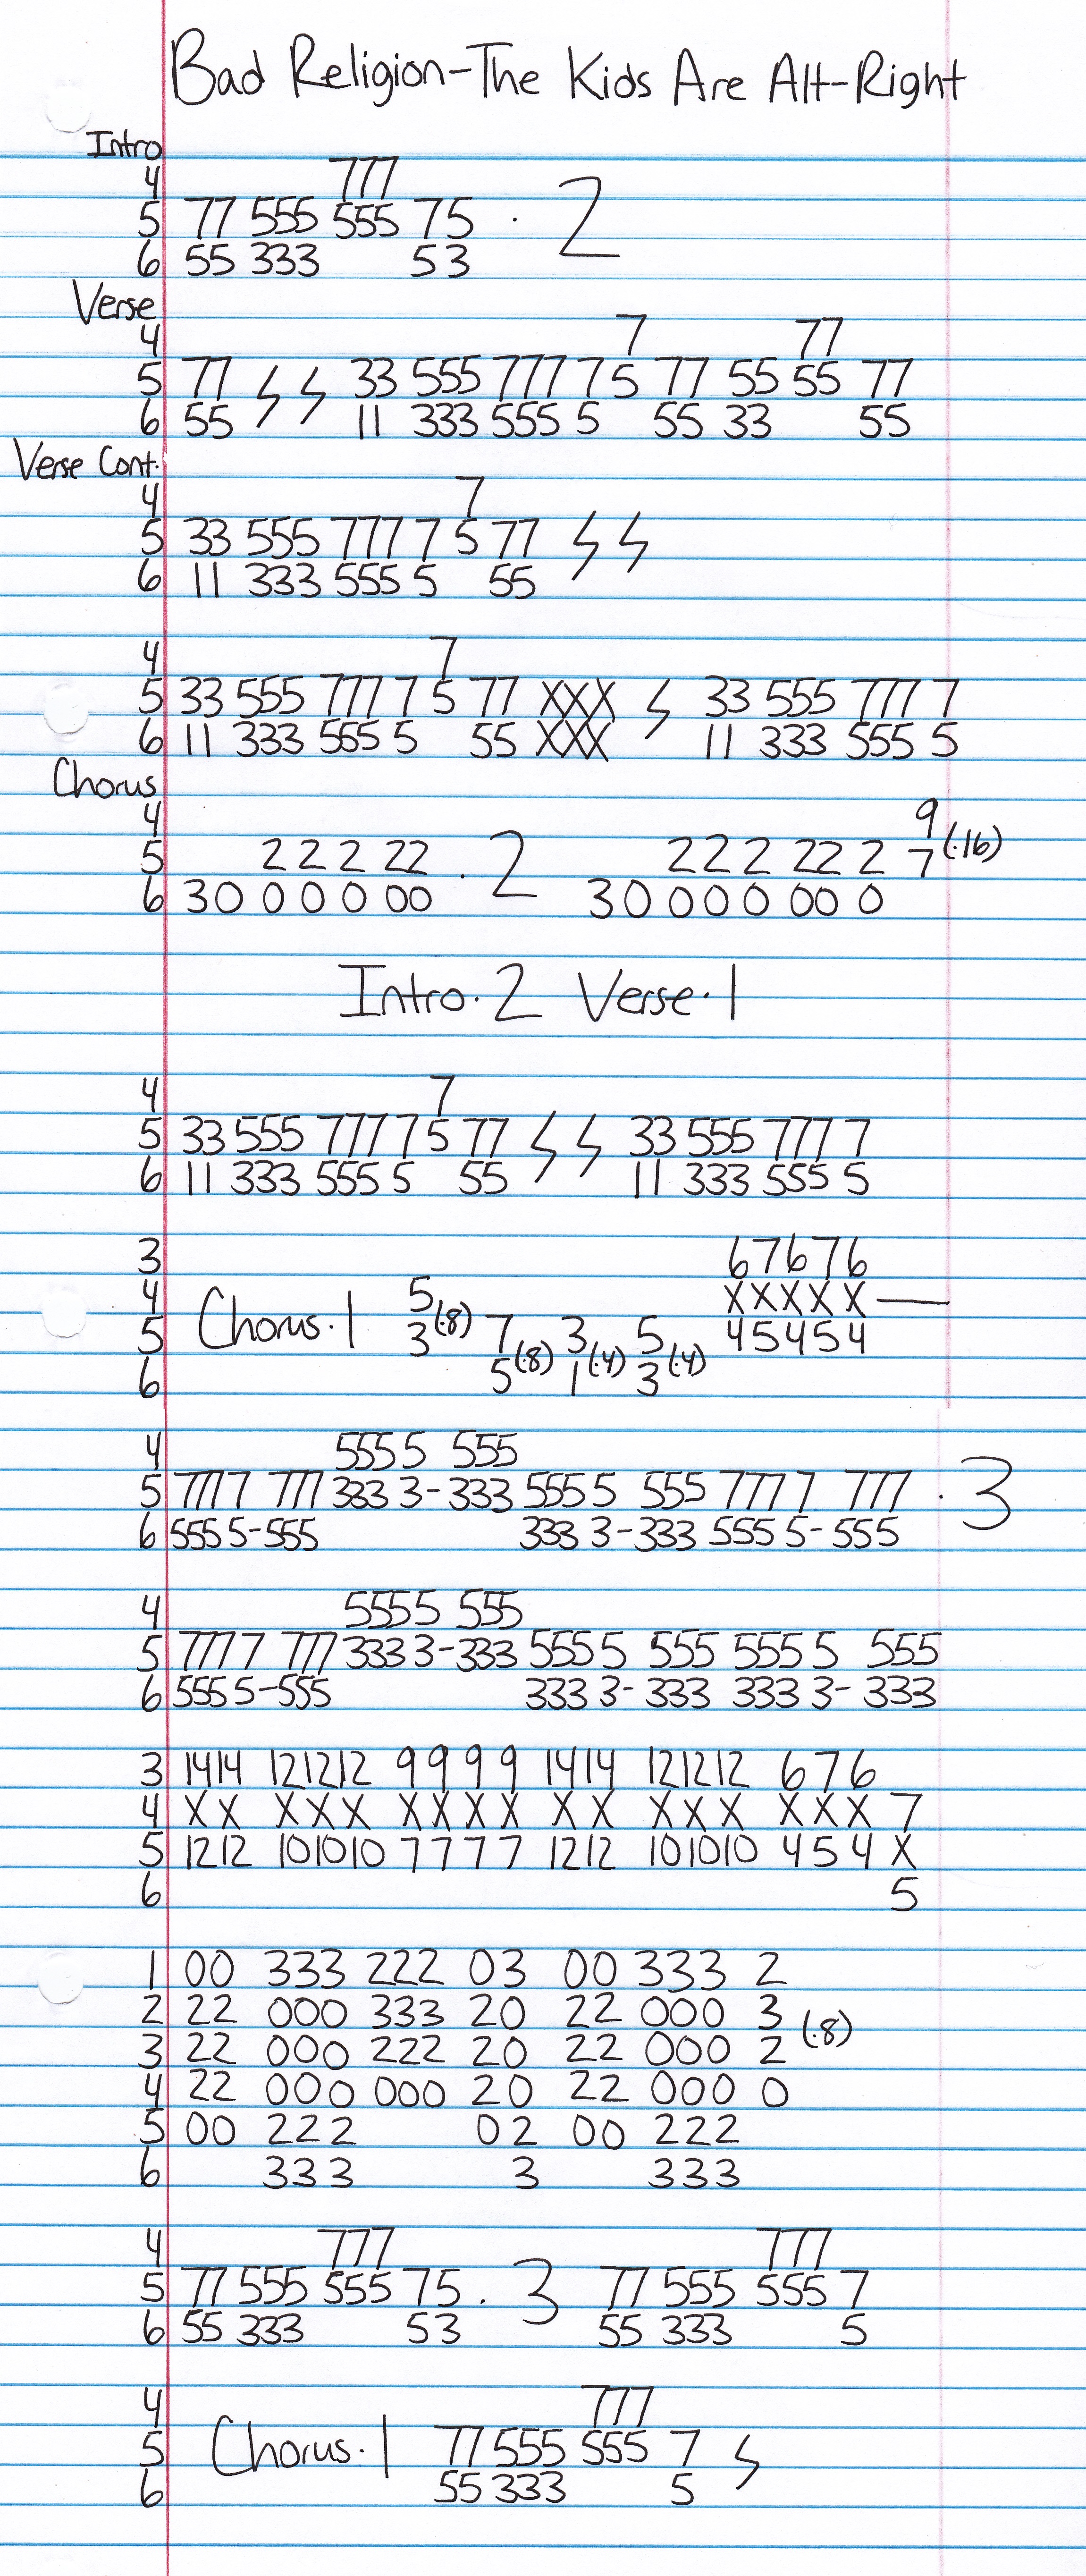 Bad Religion-The Kids Are Alt-Right
Intro
4 777
5 77 555 555 75 · 2
6 55 333 53
Verse
4 7 77
5 77 33 555 777 7 5 77 55 55 77
6 55 11 333 555 5 55 33 55
Verse Cont.
4 7
5 33 555 777 7 5 77
6 11 333 555 5 55
4 7
5 33 555 777 7 5 77 XXX 33 555 777 7
6 11 333 555 5 55 XXX 11 333 555 5
Chorus
4 9
5 2 2 2 22 · 2 2 2 2 22 2 7 (·16)
6 30 0 0 0 00 30 0 0 0 00 0
Intro·2 Verse·1
4 7
5 33 555 777 7 5 77 33 555 777 7
6 11 333 555 5 55 11 333 555 5
3 67676
4 Chorus·1 5 XXXXX—
5 3 (·8) 7 3 5 45454
6 5 (·8) 1 (·4) 3 (·4)
4 555 5 555
5 777 7 777 333 3-333 555 5 555 777 7 777 · 3
6 555 5-555 333 3-333 555 5-555
4 555 5 555
5 777 7 777 333 3-333 555 5 555 555 5 555
6 555 5-555 333 3-333 333 3-333
3 1414 121212 9999 1414 121212 676
4 XX XXX XXXX XX XXX XXX 7
5 1212 101010 7777 1212 101010 454 X
6 5
1 00 333 222 03 00 333 2
2 22 000 333 20 22 000 3 (·8)
3 22 000 222 20 22 000 2
4 22 000 000 20 22 000 0
5 00 222 02 00 222
6 333 3 333
4 777 777
5 77 555 555 75 · 3 77 555 555 7
6 55 333 53 55 333 5
4 777
5 Chorus·1 77 555 555 7
6 55 333 5